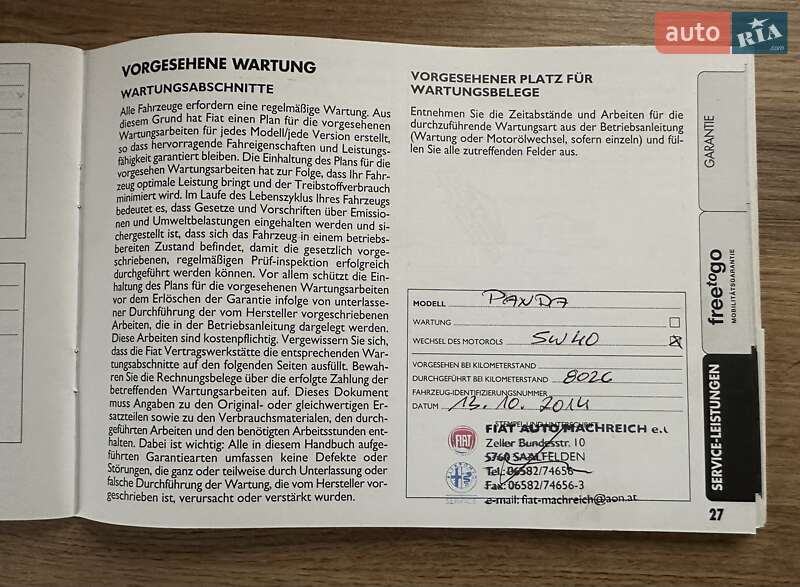 auto RIA .com
VORGESEHENE WARTUNG
WARTUNGSABSCHNITTE
Alle Fahrzeuge erfordern eine regelmäßige Wartung. Aus
diesem Grund hat Fiat einen Plan für die vorgesehenen
Wartungsarbeiten für jedes Modell/jede Version erstellt,
so dass hervorragende Fahreigenschaften und Leistungs-
fähigkeit garantiert bleiben. Die Einhaltung des Plans für die
vorgesehen Wartungsarbeiten hat zur Folge, dass Ihr Fahr-
zeug optimale Leistung bringt und der Treibstoffverbrauch
minimiert wird. Im Laufe des Lebenszyklus Ihres Fahrzeugs
bedeutet es, dass Gesetze und Vorschriften über Emissio-
nen und Umweltbelastungen eingehalten werden und si-
chergestellt ist, dass sich das Fahrzeug in einem betriebs-
bereiten Zustand befindet, damit die gesetzlich vorge-
schriebenen, regelmäßigen Prüf-inspektion erfolgreich
durchgeführt werden können. Vor allem schützt die Ein-
haltung des Plans für die vorgesehenen Wartungsarbeiten
vor dem Erlöschen der Garantie infolge von unterlasse-
ner Durchführung der vom Hersteller vorgeschriebenen
Arbeiten, die in der Betriebsanleitung dargelegt werden.
Diese Arbeiten sind kostenpflichtig. Vergewissern Sie sich,
dass die Fiat Vertragswerkstätte die entsprechenden War-
tungsabschnitte auf den folgenden Seiten ausfüllt. Bewah-
ren Sie die Rechnungsbelege über die erfolgte Zahlung der
betreffenden Wartungsarbeiten auf. Dieses Dokument
muss Angaben zu den Original- oder gleichwertigen Er-
satzteilen sowie zu den Verbrauchsmaterialen, den durch-
geführten Arbeiten und den benötigten Arbeitsstunden ent-
halten. Dabei ist wichtig: Alle in diesem Handbuch aufge-
führten Garantiearten umfassen keine Defekte oder
Störungen, die ganz oder teilweise durch Unterlassung oder
falsche Durchführung der Wartung, die vom Hersteller vor-
geschrieben ist, verursacht oder verstärkt wurden.
VORGESEHENER PLATZ FÜR
WARTUNGSBELEGE
Entnehmen Sie die Zeitabstände und Arbeiten für die
durchzuführende Wartungsart aus der Betriebsanleitung
(Wartung oder Motorölwechsel, sofern einzeln) und fül-
len Sie alle zutreffenden Felder aus.
MODELL PANDA
WARTUNG
WECHSEL DES MOTORÖLS 5W40
VORGESEHEN BEI KILOMETERSTAND
DURCHGEFÜHRT BEI KILOMETERSTAND 8026
FAHRZEUG-IDENTIFIZIERUNGSNUMMER
DATUM 13.10.2014
STEMPEL UND UNTERSCHRIFT
FIAT AUTO MACHREICH e.U
Zeller Bundesstr. 10
5760 SAALFELDEN
Tel.: 06582/74656
Fax: 06582/74656-3
e-mail: fiat-machreich@aon.at
FIAT
SERVICE
GARANTIE
freetogo
MOBILITÄTSGARANTIE
SERVICE-LEISTUNGEN
27